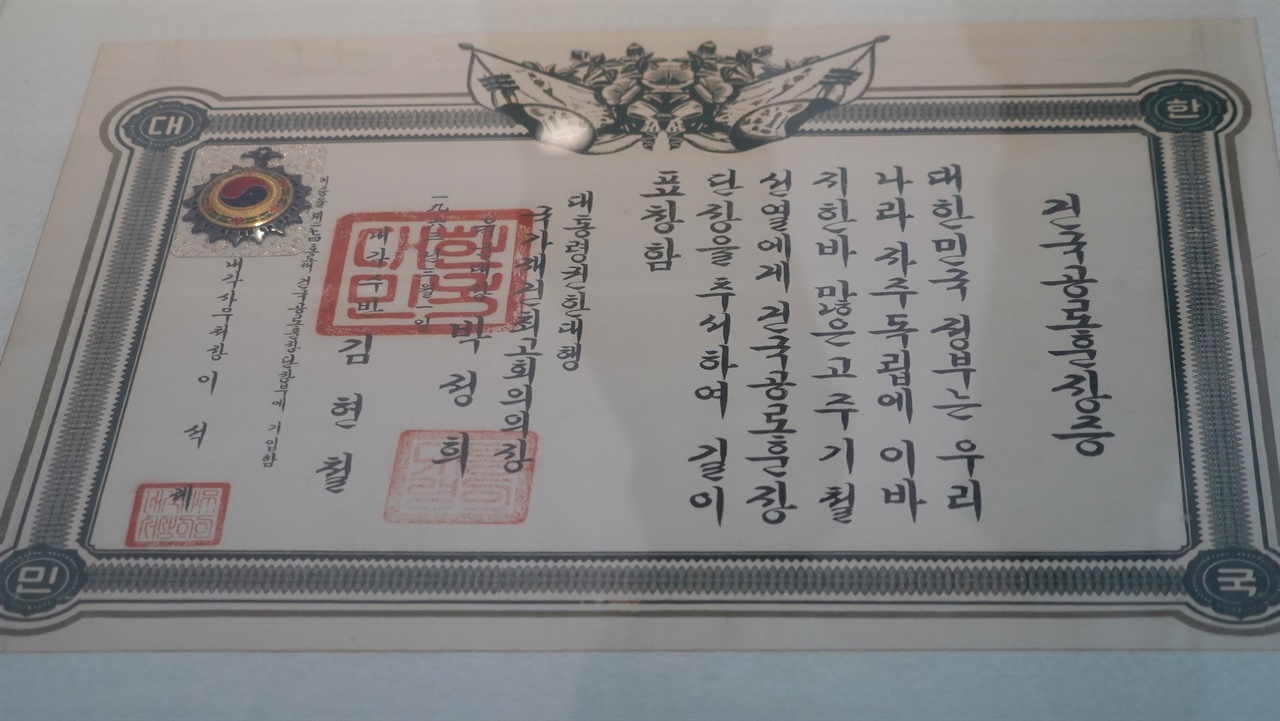 건국공로훈장증
대한민국 정부는 우리
나라 자주독립에 이바
지한바 많은 고 주기철
선열에게 건국공로훈장
단장을 추서하여 길이
표창함
대통령권한대행
국가재건최고회의의장
육군대장 박정희
내각수반 김현철
건국공로훈장단장부에 기입함
내각사무처장 이석제
대
한
민
국